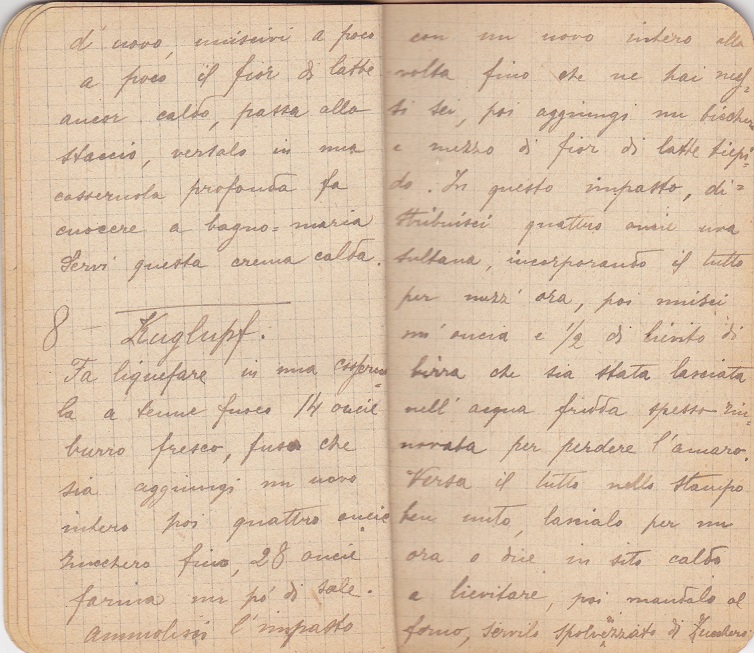 d'uovo, uniscivi a poco
a poco il fior di latte
ancor caldo, passa allo
staccio, versalo in una
casseruola profonda fa
cuocere a bagno=maria
Servi questa crema calda.
8 - Kuglupf.
Fa liquefare in una casserruo
la a tenue fuoco 14 oncie
burro fresco, fuso che
sia aggiungi un uovo
intero poi quattro oncie
zucchero fino, 28 oncie
farina un pó di sale.
Ammolisci l'impasto
con un uovo intero alla
volta fino che ne hai mes=
si sei, poi aggiungi un bicchier
e mezzo di fior di latte tiepi=
do. In questo impasto, di=
stribuisci quattro oncie uva
sultana, incorporando il tutto
per mezz'ora, poi unisci
un'oncia e 1/2 di lievito di
birra che sia stata lasciata
nell'acqua fredda spesso rin=
novata per perdere l'amaro.
Versa il tutto nello stampo
ben unto, lascialo per un
ora o due in sito caldo
a lievitare, poi mandalo al
forno, servilo spolverizzato di Zucchero.